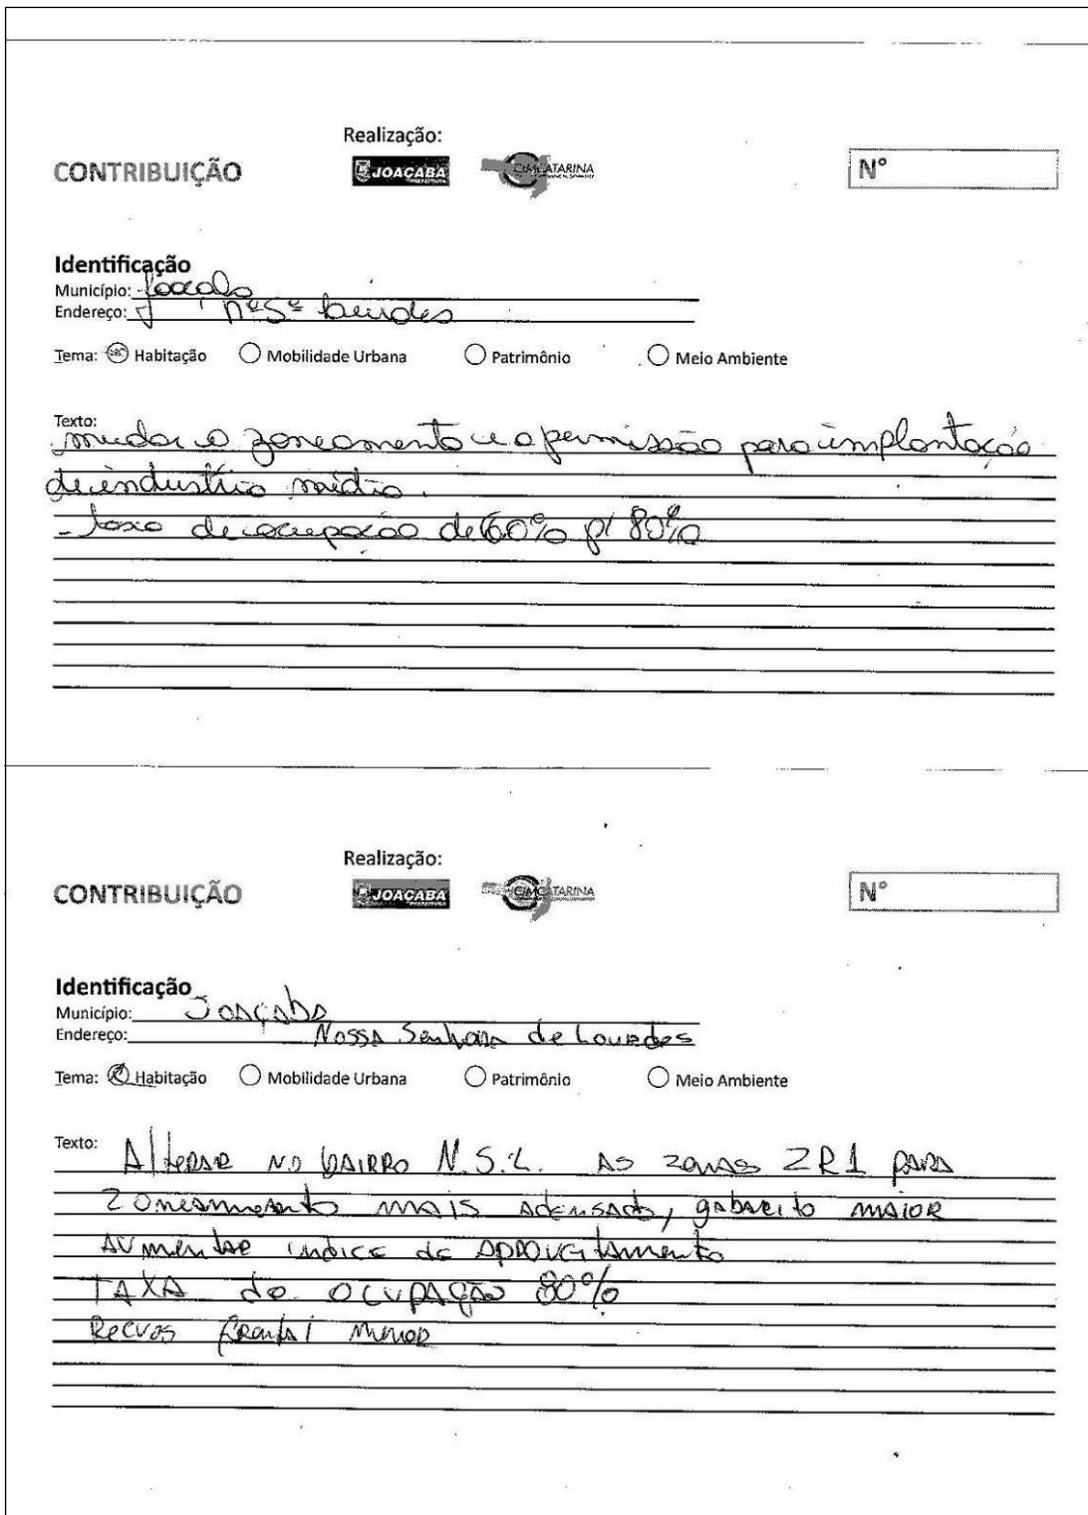 Realização:
CONTRIBUIÇÃO JOAÇABA CIMCATARINA Nº
Identificação
Município: Joaçaba
Endereço: Nª Sª Lourdes
Tema: Habitação Mobilidade Urbana Patrimônio Meio Ambiente
Texto:
mudar o zoneamento e a permissão para implantação
de indústria média.
- taxa de ocupação de 60% p/ 80%
Realização:
CONTRIBUIÇÃO JOAÇABA CIMCATARINA Nº
Identificação
Município: Joaçaba
Endereço: Nossa Senhora de Lourdes
Tema: Habitação Mobilidade Urbana Patrimônio Meio Ambiente
Texto: Alterar no bairro N.S.L. as zonas ZR1 para
zoneamento mais adensado, gabarito maior
aumentar indice de aproveitamento
TAXA de ocupação 80%
Recuos frontal menor